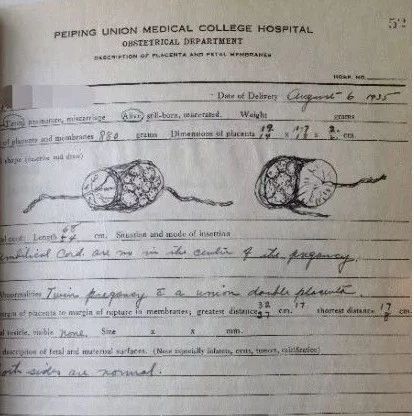 52
PEIPING UNION MEDICAL COLLEGE HOSPITAL
OBSTETRICAL DEPARTMENT
DESCRIPTION OF PLACENTA AND FETAL MEMBRANES
HOSP. NO.
Date of Delivery August 6 1935
Term, premature, miscarriage Alive, still-born, macerated. Weight grams
of placenta and membranes 880 grams Dimensions of placenta x x cm
shape (describe and draw)
cord: Length cm. Situation and mode of insertion
umbilical Cord are no in the center of the pregancy.
Abnormalities Twin pregancy c̄ a union double placenta.
margin of placenta to margin of rupture in membranes; greatest distance cm. shortest distance cm.
vesicle, visible none. Size x x mm.
description of fetal and maternal surfaces. (Note especially infarcts, cysts, tumors, calcification)
both sides are normal.